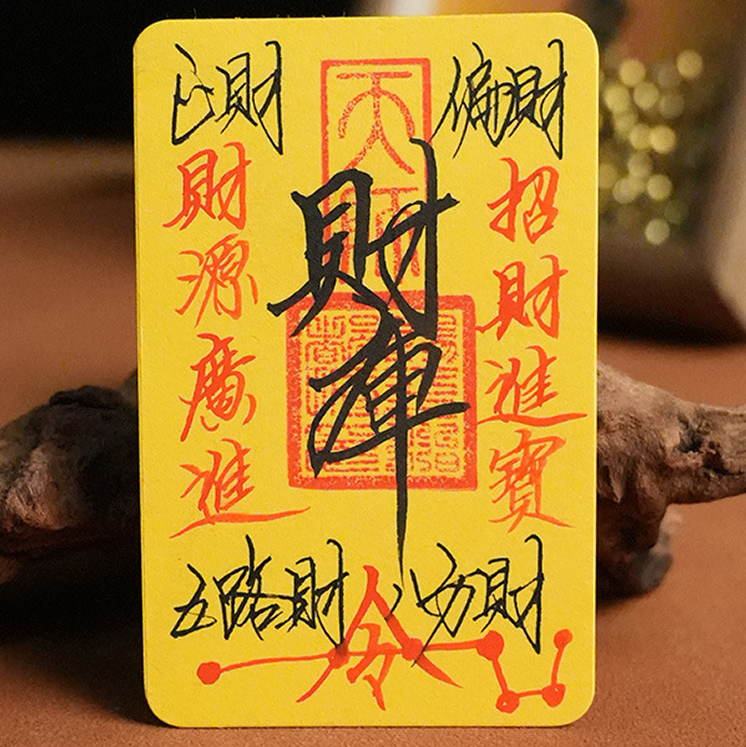 正財
天師
偏財
財源廣進
財庫
招財進寶
五路財
令
八方財